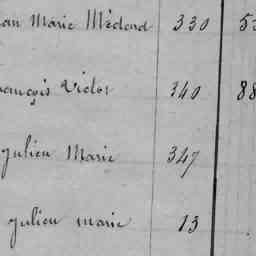 an Marie Médard 330 5
rançois Violet 340 88
Julien Marie 347
Julien marie 13